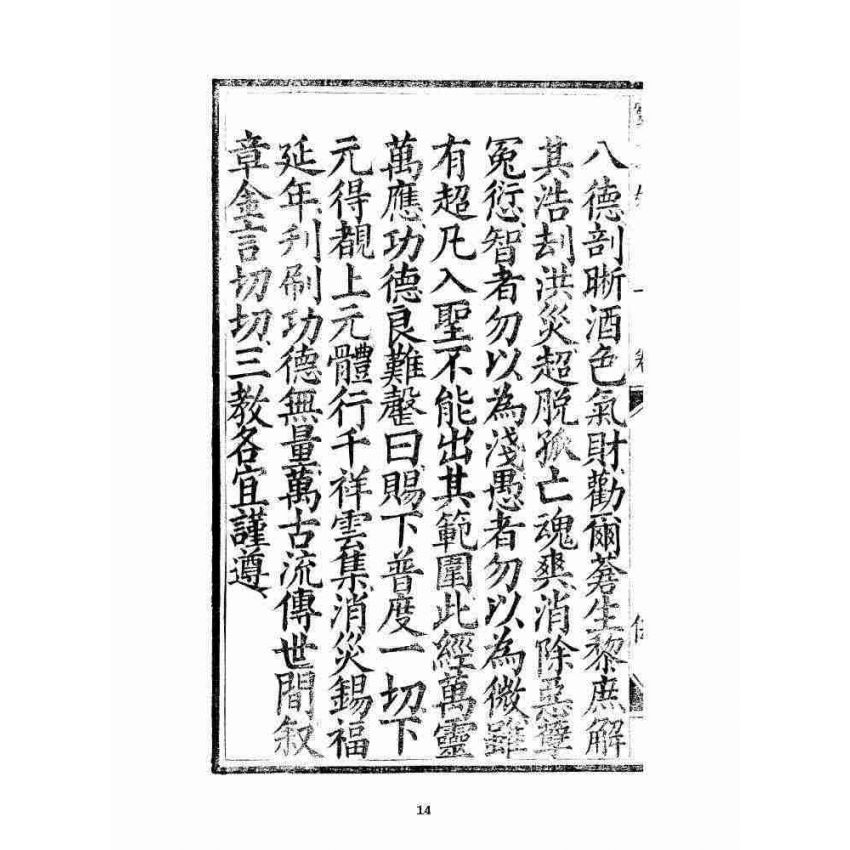 八德剖晰酒色氣財勸爾蒼生黎庶解
其浩刦洪災超脫孤亡魂爽消除惡孽
冤愆智者勿以為淺愚者勿以為微雖
有超凡入聖不能出其範圍此經萬靈
萬應功德良難罄曰賜下普度一切下
元得覩上元體行千祥雲集消災錫福
延年刋刷功德無量萬古流傳世間叙
章金言切切三教各宜謹遵
14